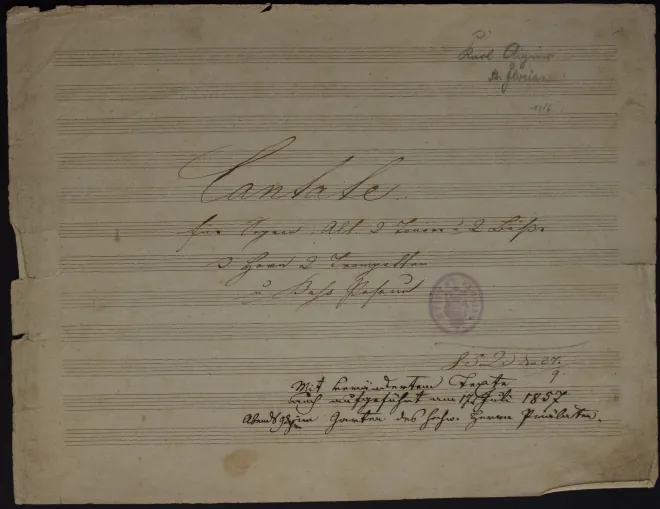 Karl Aigner
St. Florian
Cantate
für Sopran, Alt, 2 Tenore u 2 Bäße
3 Horn 2 Trompetten
u Bass Posaun
Mit verändertem Texte
auch aufgeführt am 17. Juli 1857
Abends im Garten des hochw. Herrn Prälaten.